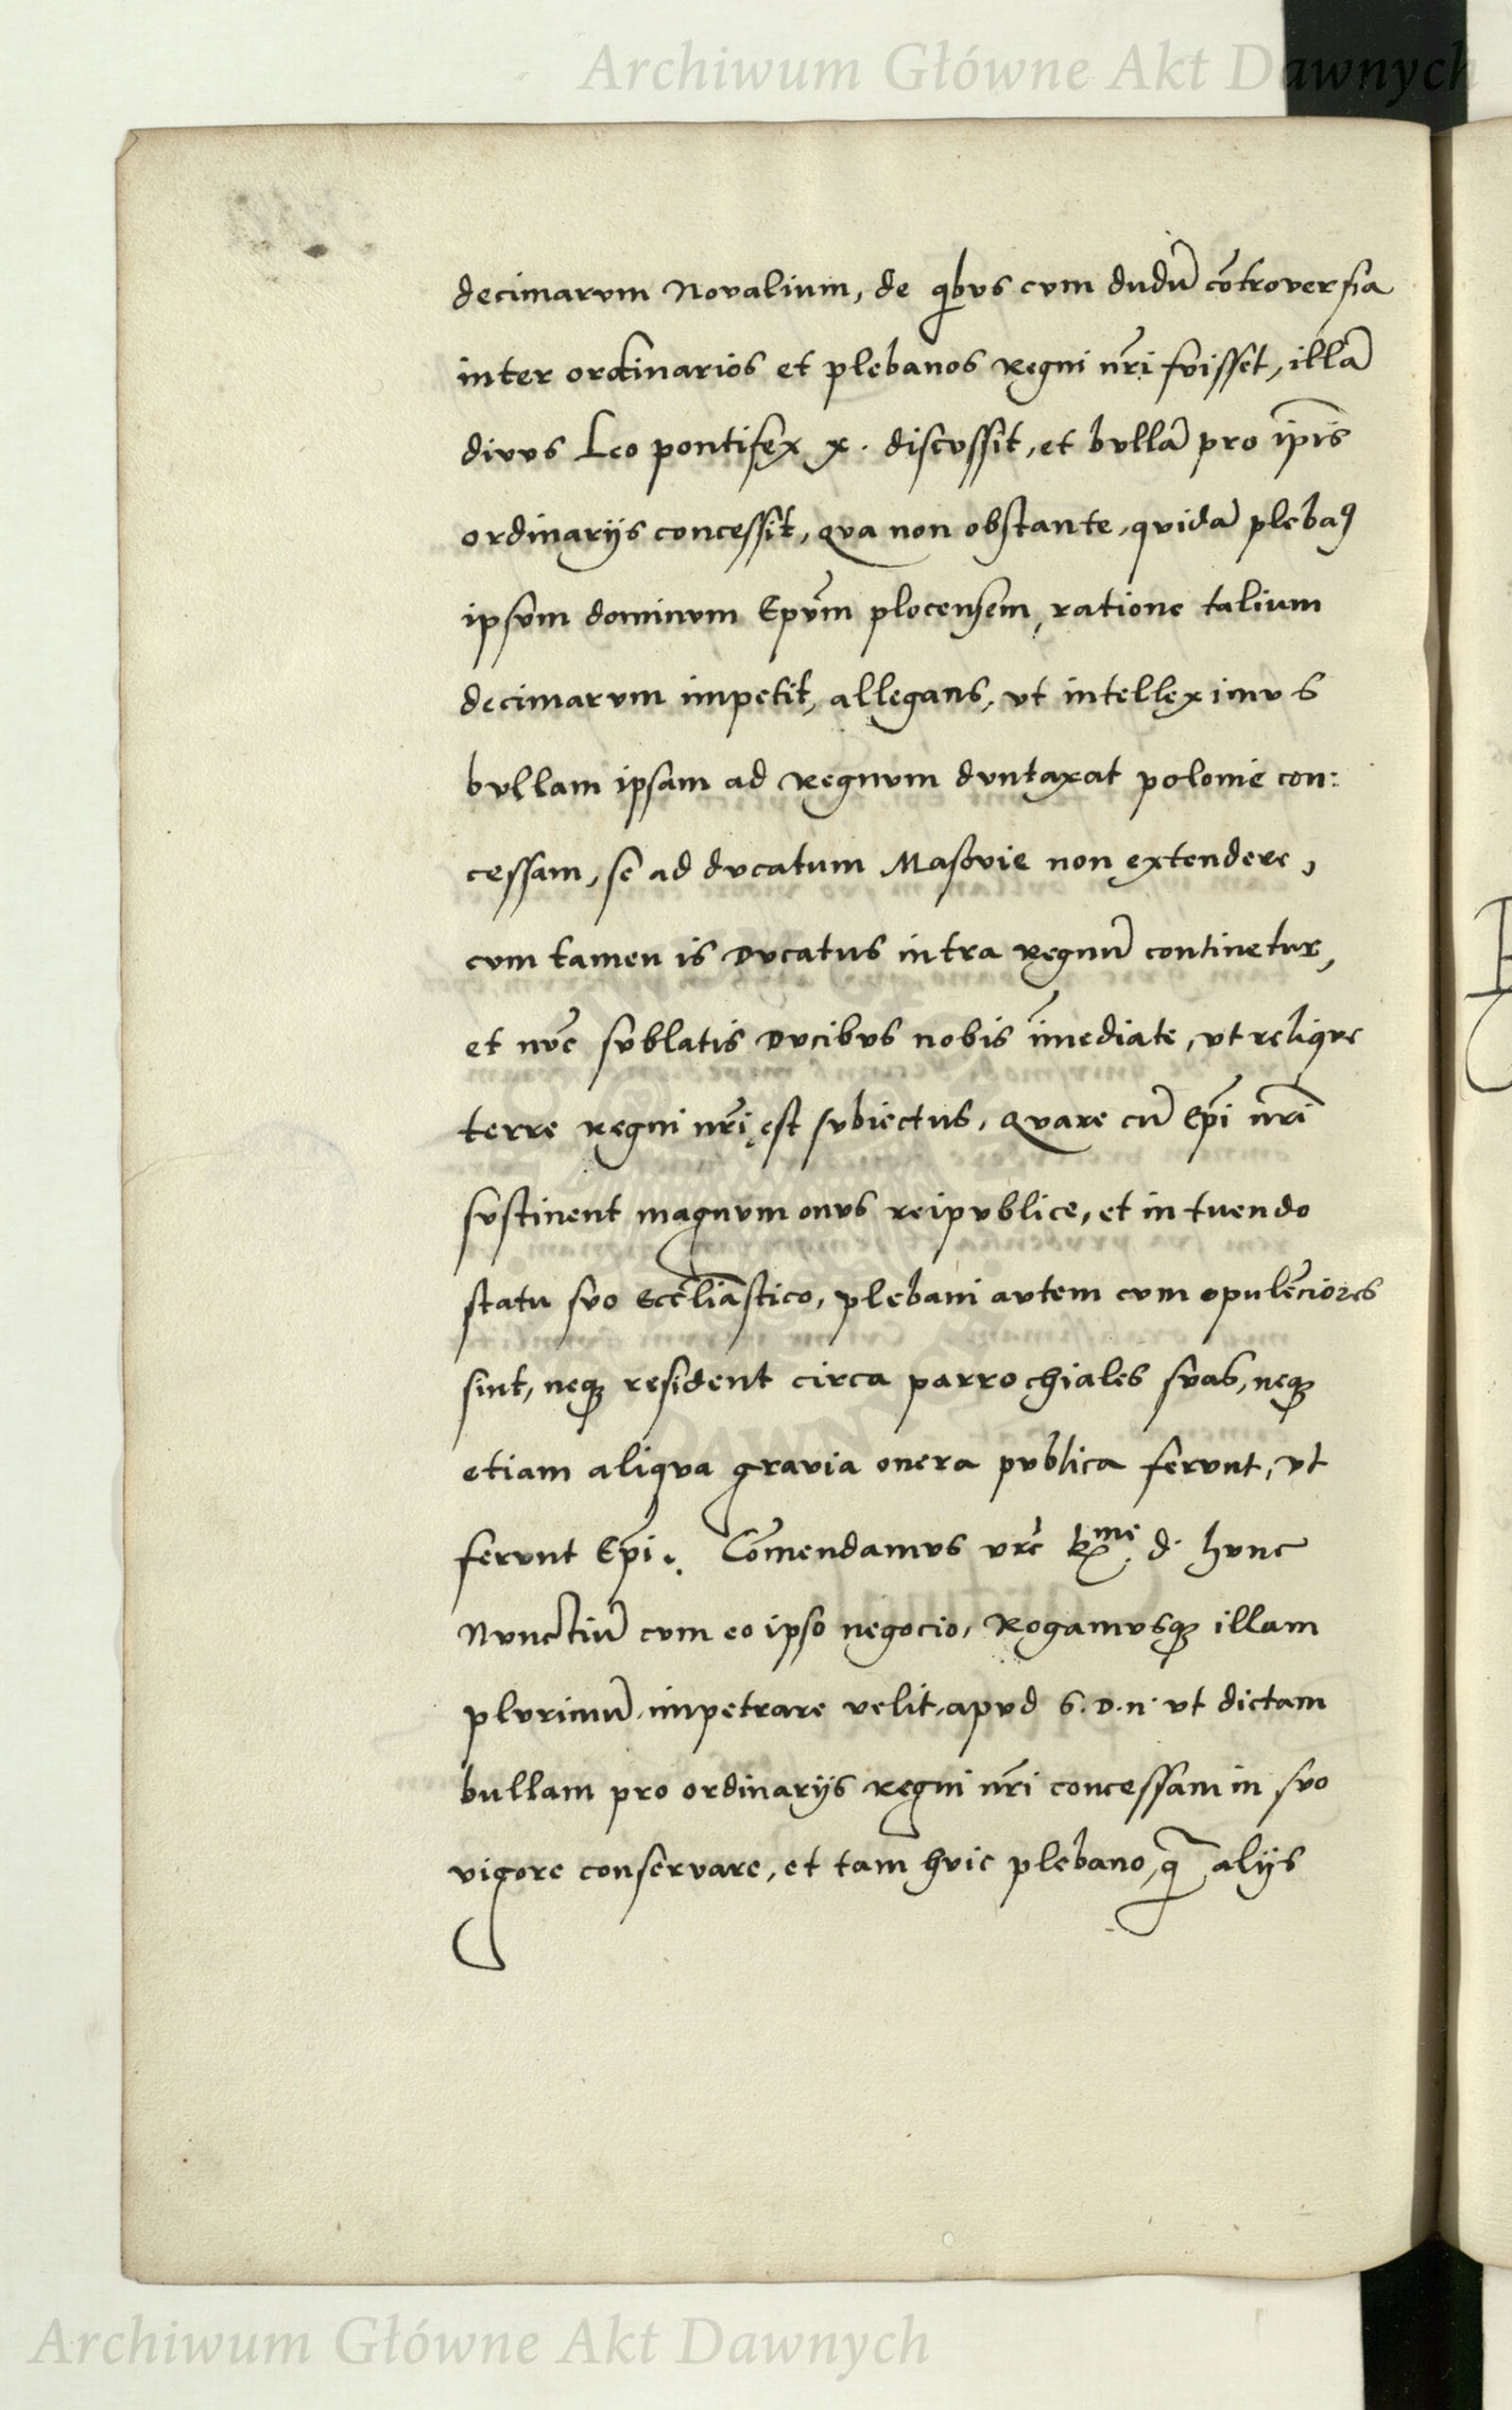 Archiwum Główne Akt Dawnych
decimarvm Novalium, de qibvs cvm dudū cōtroversia
inter ordinarios et plebanos Regni nr̄i fvisset, illā
divvs Leo pontifex x. discvssit, et bvllā pro ip̄is
ordinarijs concessit, qva non obstante, qvidā plebaꝰ
ipsvm dominvm Ep̄vm plocensem, ratione talium
decimarvm impetit, allegans, vt intelleximvs
bvllam ipsam ad Regnvm dvntaxat polonie con:
cessam, se ad dvcatum Masovie non extendere,
cvm tamen is Dvcatus intra Regnū continetur,
et nv̄c svblatis Dvcibvs nobis īmediate, vt reliqve
terre Regni nr̄i est svbiectus, Qvare cū Ep̄i nr̄i
svstinent magnvm onvs reipvblice, et in tvendo
statu svo Eccl̄iastico, plebani avtem cvm opulēciores
sint, neqꝫ resident circa parrochiales svas, neqꝫ
etiam aliqva gravia onera pvblica fervnt, vt
fervnt Ep̄i. Cōmendamvs vr̄e R^me d. hvnc
Nvnctiū cvm eo ipso negocio, Rogamvsqꝫ illam
plvrimū, impetrare velit, apvd S. D. n. vt dictam
bullam pro ordinarijs Regni nr̄i concessam in svo
vigore conservare, et tam hvic plebano, q̄ alijs
Archiwum Główne Akt Dawnych